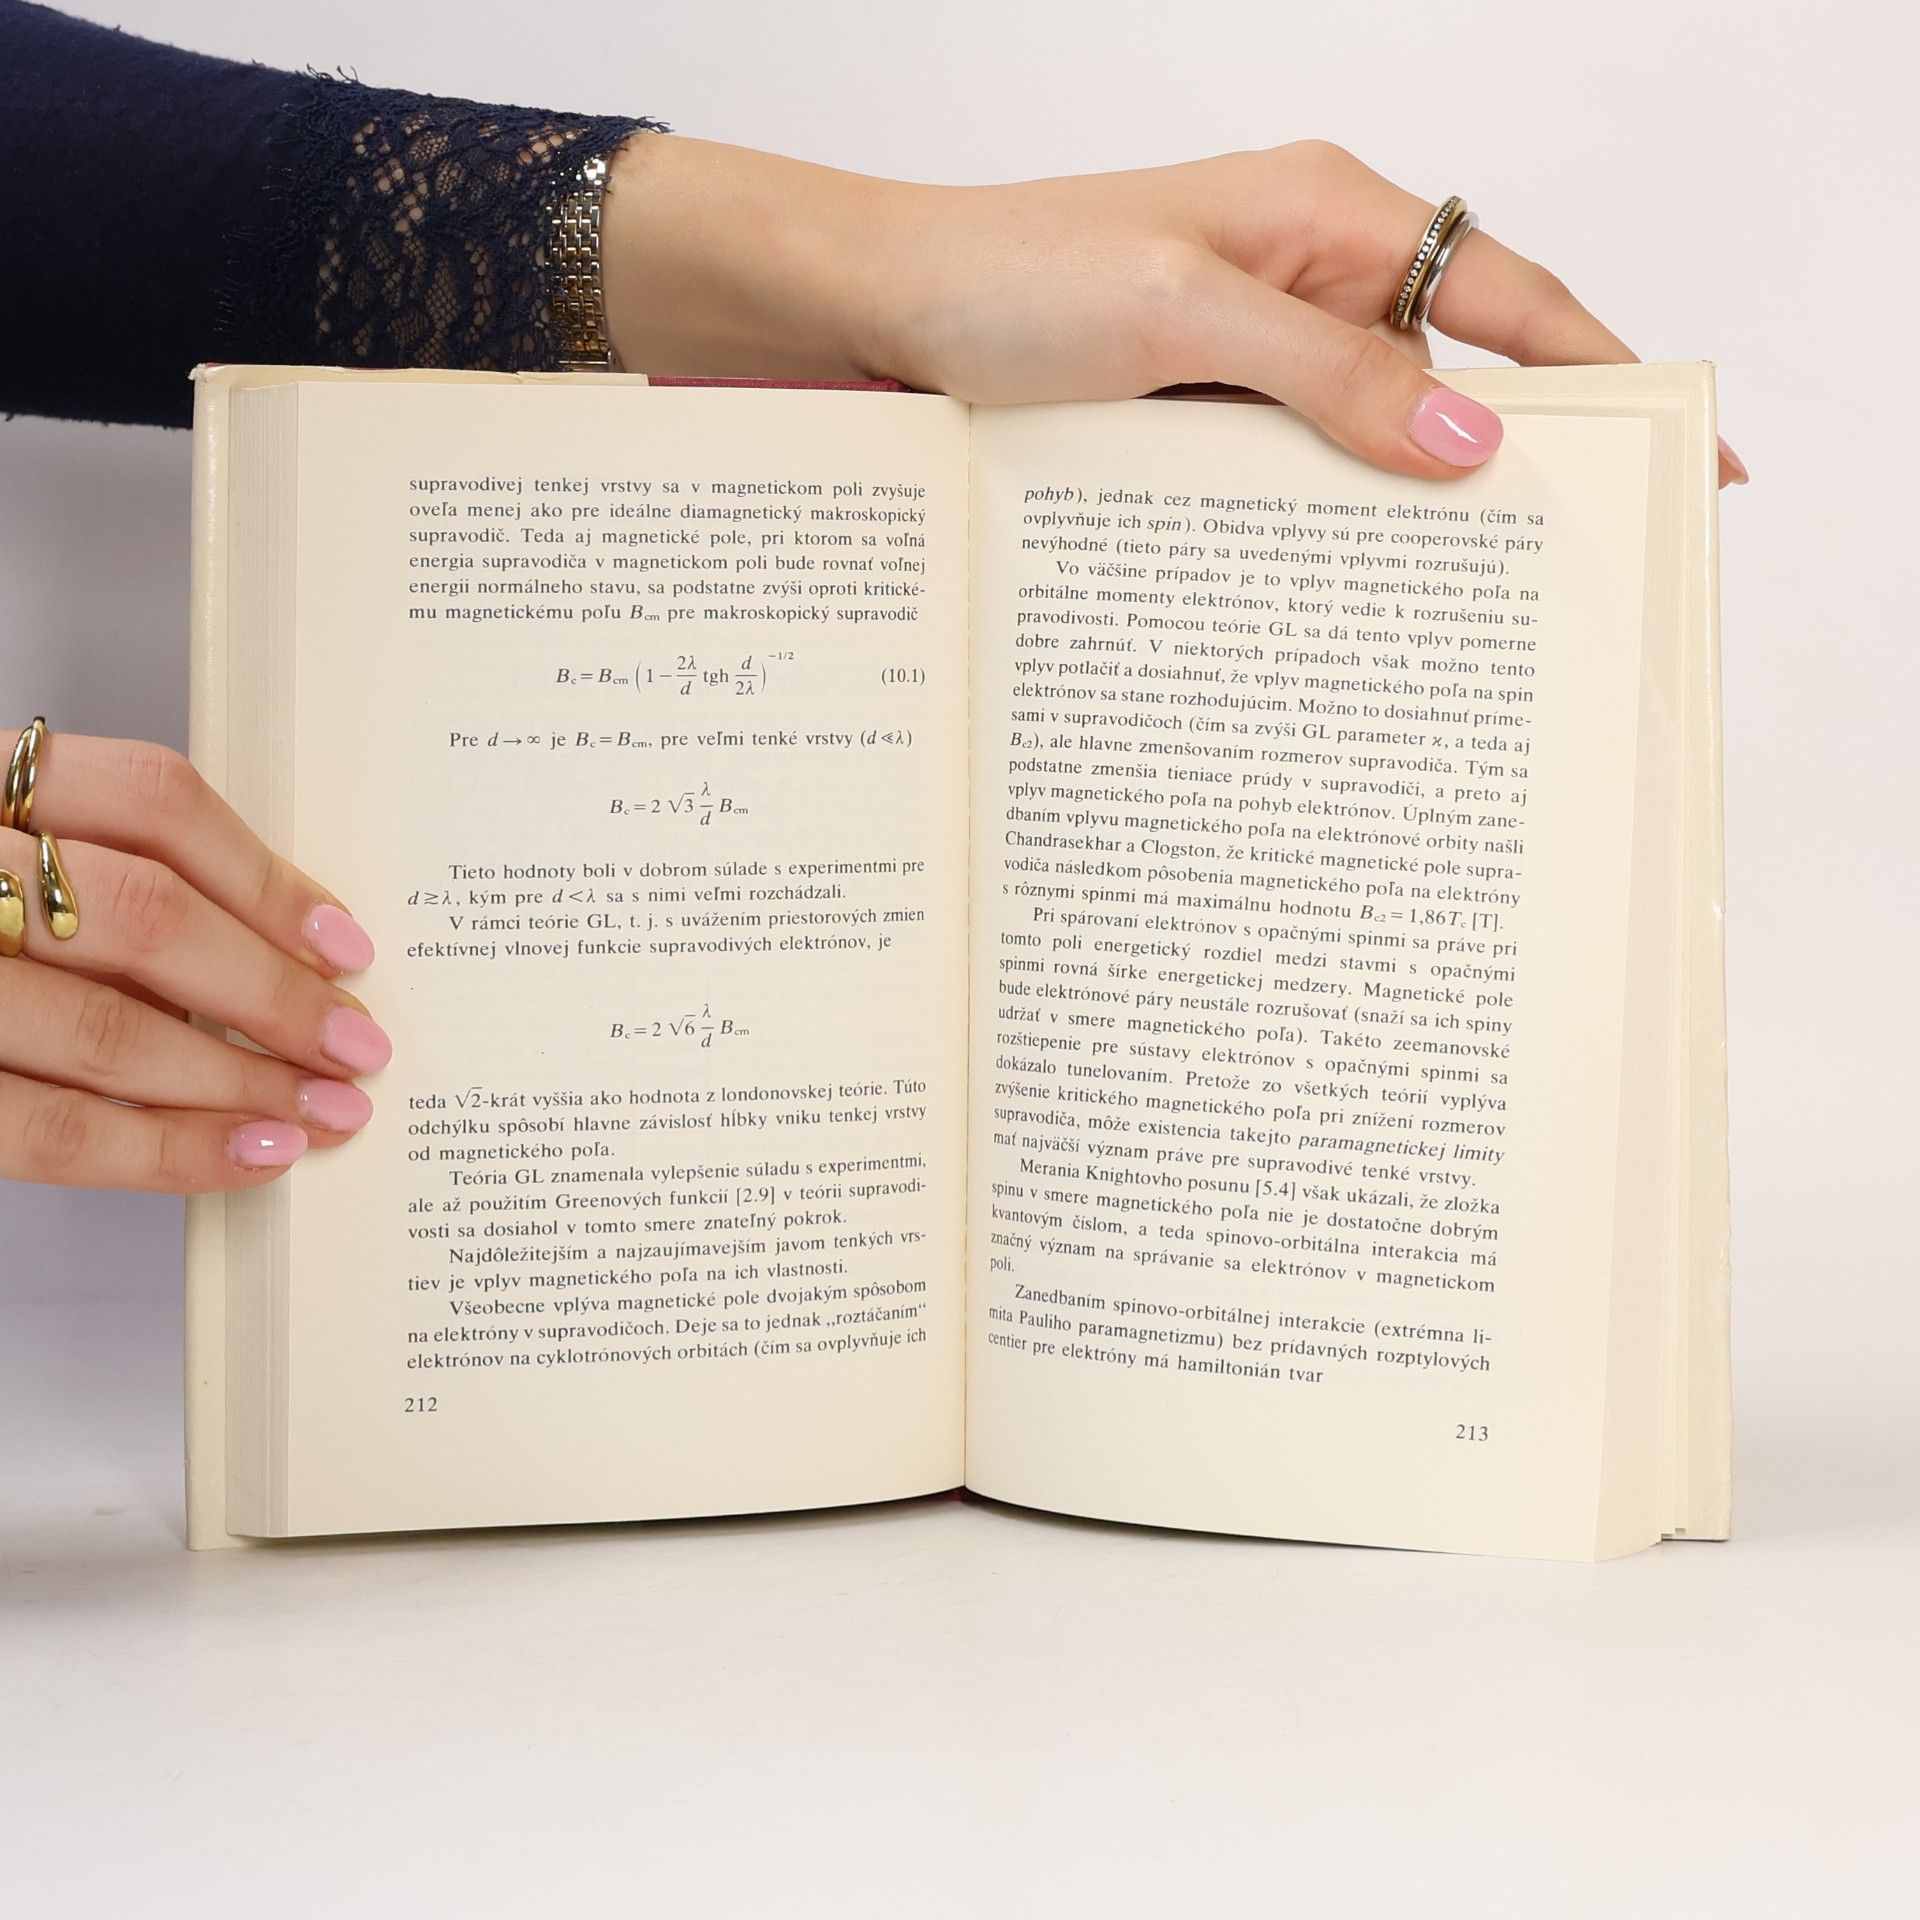 supravodivej tenkej vrstvy sa v magnetickom poli zvyšuje
oveľa menej ako pre ideálne diamagnetický makroskopický
supravodič. Teda aj magnetické pole, pri ktorom sa voľná
energia supravodiča v magnetickom poli bude rovnať voľnej
energii normálneho stavu, sa podstatne zvýši oproti kritické-
mu magnetickému poľu B_cm pre makroskopický supravodič
B_c = B_cm (1 − 2λ/d tgh d/2λ)^−1/2 (10.1)
Pre d → ∞ je B_c = B_cm, pre veľmi tenké vrstvy (d ≪ λ)
B_c = 2 √3 λ/d B_cm
Tieto hodnoty boli v dobrom súlade s experimentmi pre
d ≳ λ, kým pre d < λ sa s nimi veľmi rozchádzali.
V rámci teórie GL, t. j. s uvážením priestorových zmien
efektívnej vlnovej funkcie supravodivých elektrónov, je
B_c = 2 √6 λ/d B_cm
teda √2-krát vyššia ako hodnota z londonovskej teórie. Túto
odchýlku spôsobí hlavne závislosť hĺbky vniku tenkej vrstvy
od magnetického poľa.
Teória GL znamenala vylepšenie súladu s experimentmi,
ale až použitím Greenových funkcií [2.9] v teórii supravodi-
vosti sa dosiahol v tomto smere znateľný pokrok.
Najdôležitejším a najzaujímavejším javom tenkých vrs-
tiev je vplyv magnetického poľa na ich vlastnosti.
Všeobecne vplýva magnetické pole dvojakým spôsobom
na elektróny v supravodičoch. Deje sa to jednak „roztáčaním“
elektrónov na cyklotrónových orbitách (čím sa ovplyvňuje ich
212
pohyb), jednak cez magnetický moment elektrónu (čím sa
ovplyvňuje ich spin). Obidva vplyvy sú pre cooperovské páry
nevýhodné (tieto páry sa uvedenými vplyvmi rozrušujú).
Vo väčšine prípadov je to vplyv magnetického poľa na
orbitálne momenty elektrónov, ktorý vedie k rozrušeniu su-
pravodivosti. Pomocou teórie GL sa dá tento vplyv pomerne
dobre zahrnúť. V niektorých prípadoch však možno tento
vplyv potlačiť a dosiahnuť, že vplyv magnetického poľa na spin
elektrónov sa stane rozhodujúcim. Možno to dosiahnuť príme-
sami v supravodičoch (čím sa zvýši GL parameter ϰ, a teda aj
B_c2), ale hlavne zmenšovaním rozmerov supravodiča. Tým sa
podstatne zmenšia tieniace prúdy v supravodiči, a preto aj
vplyv magnetického poľa na pohyb elektrónov. Úplným zane-
dbaním vplyvu magnetického poľa na elektrónové orbity našli
Chandrasekhar a Clogston, že kritické magnetické pole supra-
vodiča následkom pôsobenia magnetického poľa na elektróny
s rôznymi spinmi má maximálnu hodnotu B_c2 = 1,86T_c [T].
Pri spárovaní elektrónov s opačnými spinmi sa práve pri
tomto poli energetický rozdiel medzi stavmi s opačnými
spinmi rovná šírke energetickej medzery. Magnetické pole
bude elektrónové páry neustále rozrušovať (snaží sa ich spiny
udržať v smere magnetického poľa). Takéto zeemanovské
rozštiepenie pre sústavy elektrónov s opačnými spinmi sa
dokázalo tunelovaním. Pretože zo všetkých teórií vyplýva
zvýšenie kritického magnetického poľa pri znížení rozmerov
supravodiča, môže existencia takejto paramagnetickej limity
mať najväčší význam práve pre supravodivé tenké vrstvy.
Merania Knightovho posunu [5.4] však ukázali, že zložka
spinu v smere magnetického poľa nie je dostatočne dobrým
kvantovým číslom, a teda spinovo-orbitálna interakcia má
značný význam na správanie sa elektrónov v magnetickom
poli.
Zanedbaním spinovo-orbitálnej interakcie (extrémna li-
mita Pauliho paramagnetizmu) bez prídavných rozptylových
centier pre elektróny má hamiltonián tvar
213